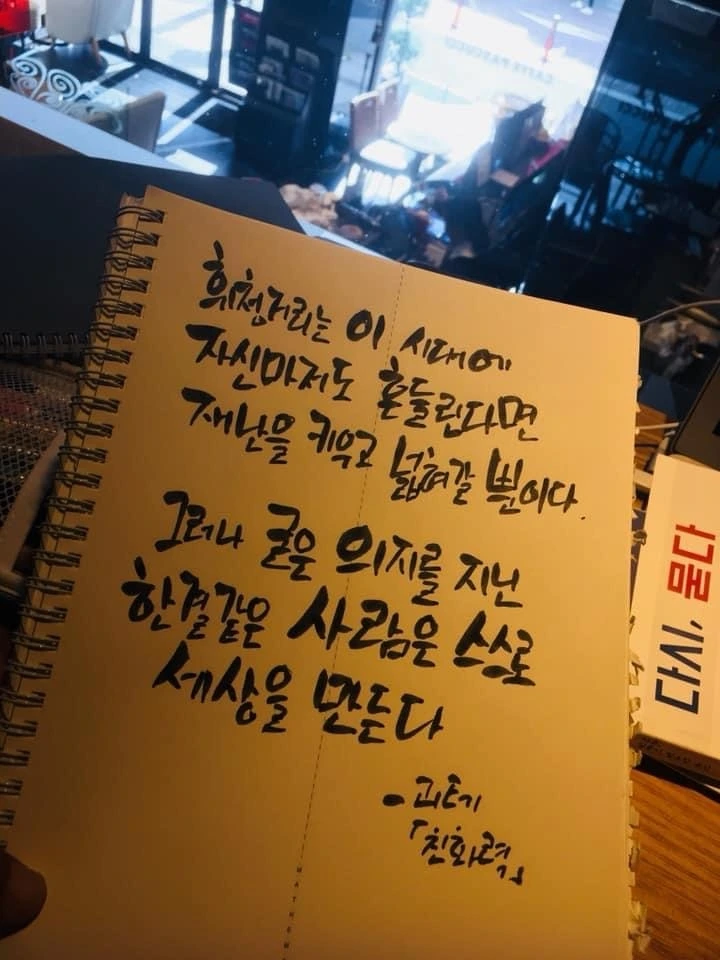 휘청거리는 이 시대에
자신마저도 흔들린다면
재난을 키우고 넓혀갈 뿐이다.
그러나 굳은 의지를 지닌
한결같은 사람은 스스로
세상을 만든다
- 괴테
「친화력」
다시, 묻다
CAFFE PASCUCCI